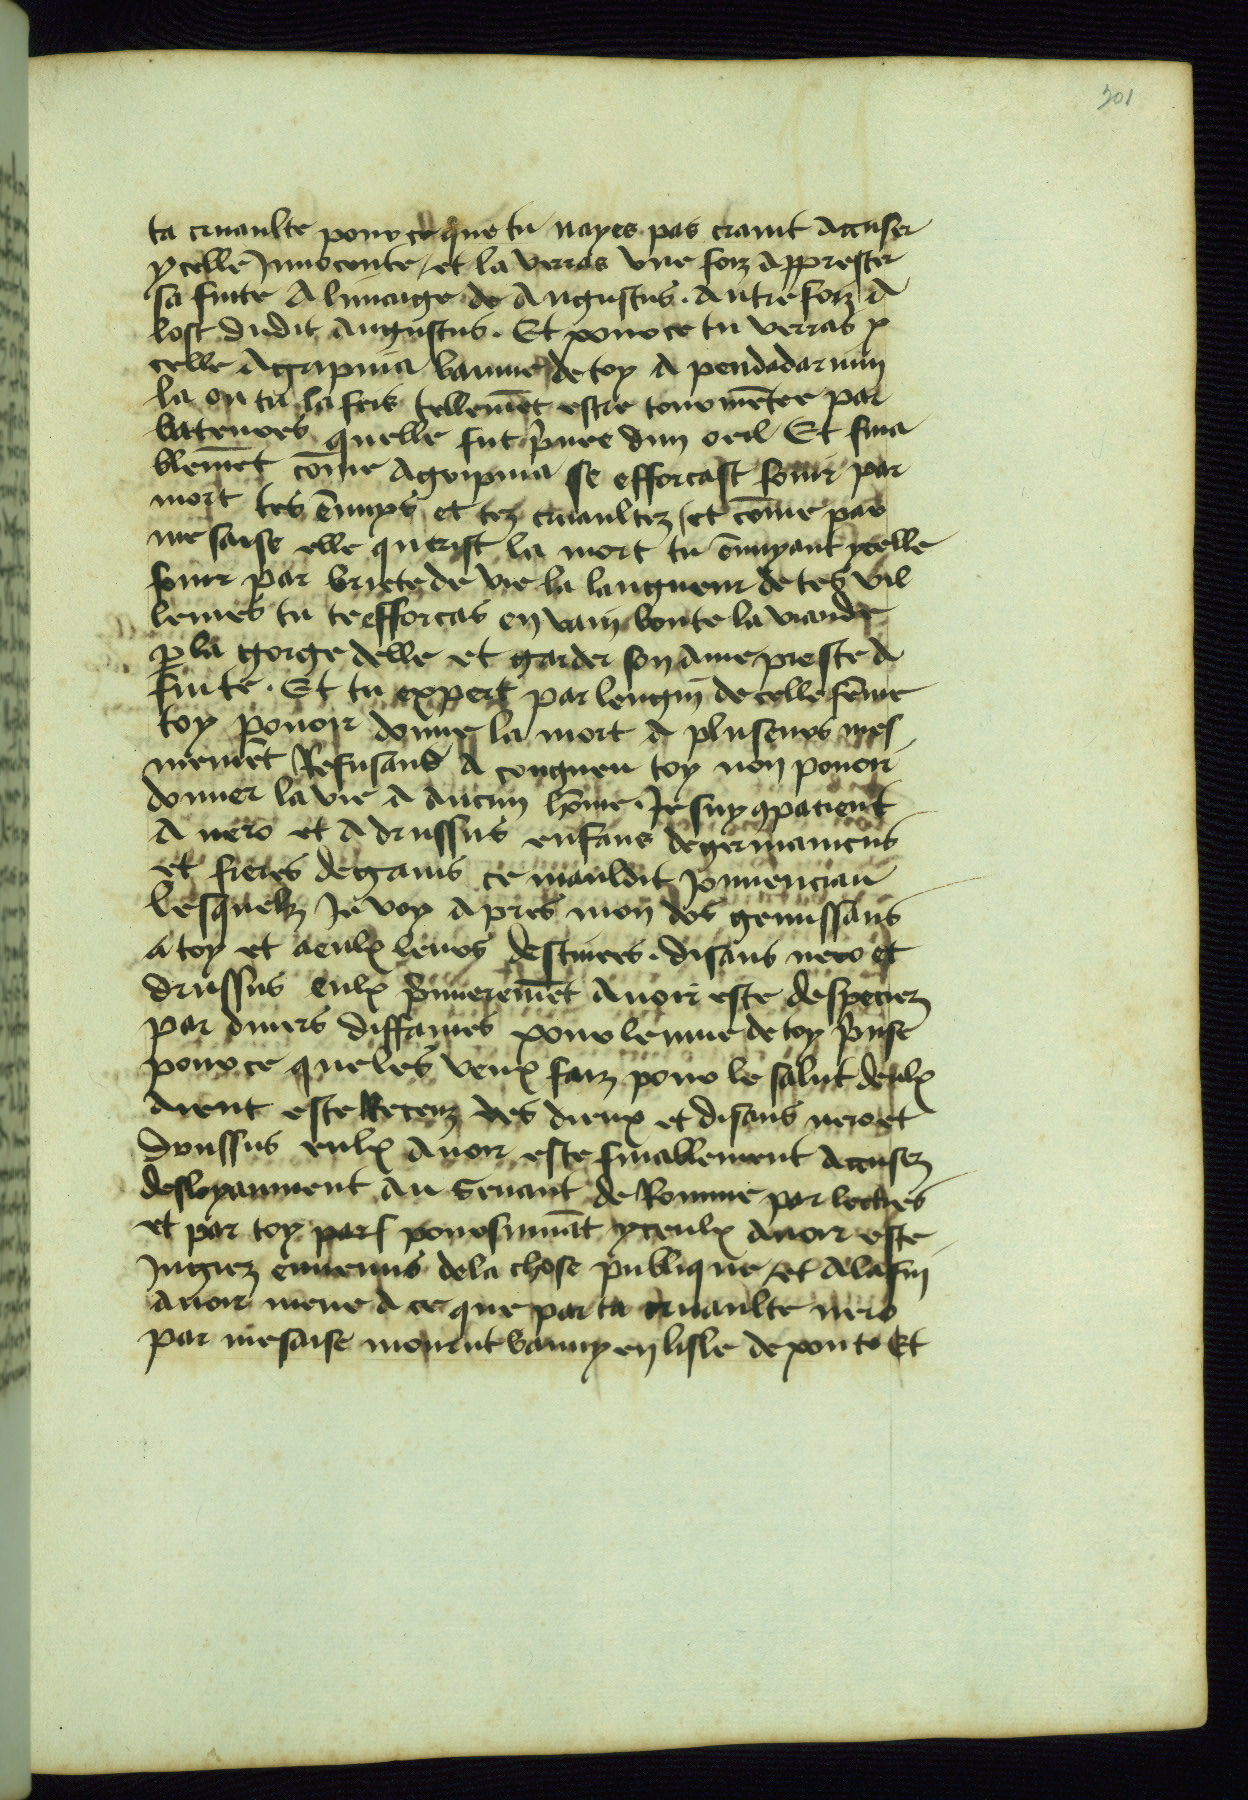 301
ta cruaulte pour ce que tu nayes pas craint accuser
ycelle Innocente / et la verras vne foiz apprester
sa fuite A limaige de Augustus . Autre foiz A
lost dudit Augustus . Et pour ce tu verras y
celle Agripina bannie de toy A pendadarium
la ou tu la feis tellemēt estre tourmētee par
bateures quelle fut p̄uee dun oeil Et fina
blemēt cōme Agripina se efforcast fouir par
mort tes ēnuys et tez cruaultez / et cōme par
mesaise elle querist la mort tu ēnuyant ycelle
fouir par briete de vie la langueur de tes vil
lenies tu te efforcas en vain boute la viande
p̱ la gorge delle et garder son ame preste A
fuite . Et tu expert par lengin de celle fēme
toy pouoir donne la mort A pluseurs mes
memēt Refusans A congneu toy non pouoir
donner la vie A aucun hōme . Je suy 9pacient
A nero et A drussus enfans de germanicus
et freres de gaius ce mauldit Jouuenciau
lesquelz Je voy Apres mon dos gemissans
a toy et aeulx leurs destinees . disans nero et
drussus eulx p̄mieremēt Auoir este despeciez
par diuers diffames pour lenuie de toy p̄nse
pour ce que les veux faiz pour le salut deulx
Aient este Receuz des dieux et disans nero et
Drussus eulx Auoir este finablement Accusez
desloyaument Au Senant de Romme par lectres
et par toy parf poursuiuāt yceulx Auoir este
Jugiez ennemis de la chose publique / et A la fin
Auoir mene A ce que par ta cruaulte nero
par mesaise mourut banny en lisle de ponto Et